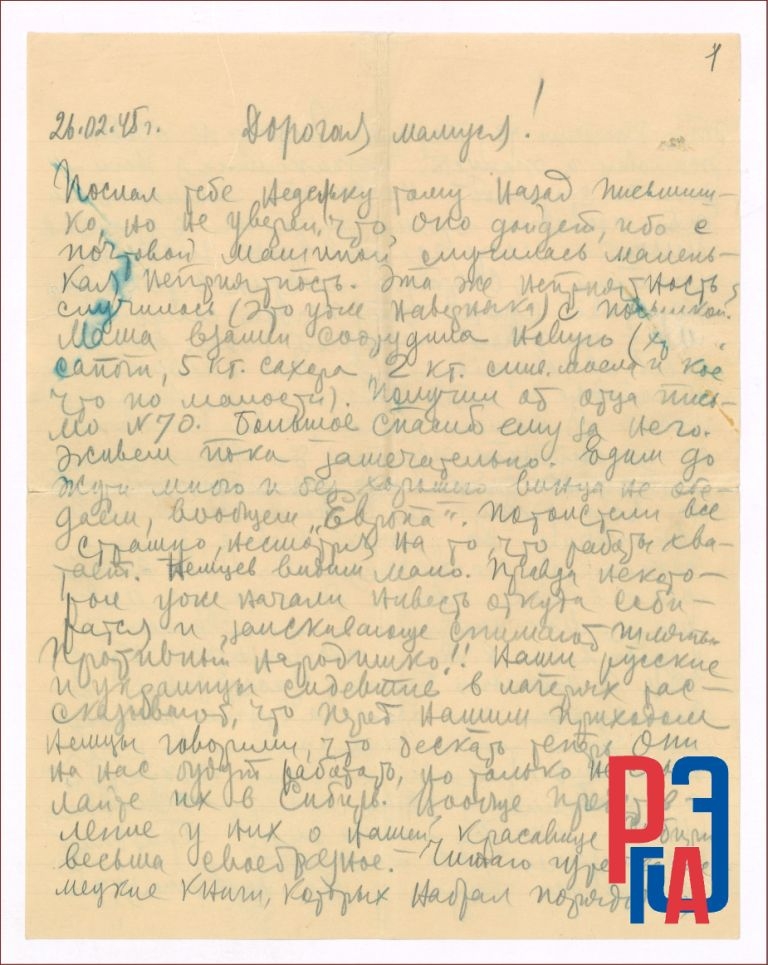 1
26.02.45 г. Дорогая мамуся!
Послал тебе недельку тому назад письмиш-
ко, но не уверен, что оно дойдет, ибо с
почтовой машиной случилась малень-
кая неприятность. Эта же неприятность
случилась (это уже наверняка) с посылкой.
Маша взамен соорудила новую (
сапоги, 5 кг. сахара, 2 кг. слив. масла и кое
что по малости). Получил от отца пись-
мо №70. Большое спасиб ему за него.
Живем пока замечательно. Едим до
жути много и без хорошего винца не обе-
даем, вообщем „Европа". Потолстели все
страшно, несмотря на то, что работы хва-
тает. Немцев видим мало. Правда некото-
рые уже начали нивесть откуда соби-
ратся и заискивающе снимают шляпы.
Противный народишко!! Наши русские
и украинцы сидевшие в лагерях рас-
сказывают, что перед нашим приходом
немцы говорили, что дескать теперь они
на нас будут работать, но только не
лайте их в Сибирь. Вообще представ-
ление у них о нашей красавице
весьма своебразное. – Читаю
мецкие книги, которых набрал
РГАЭ